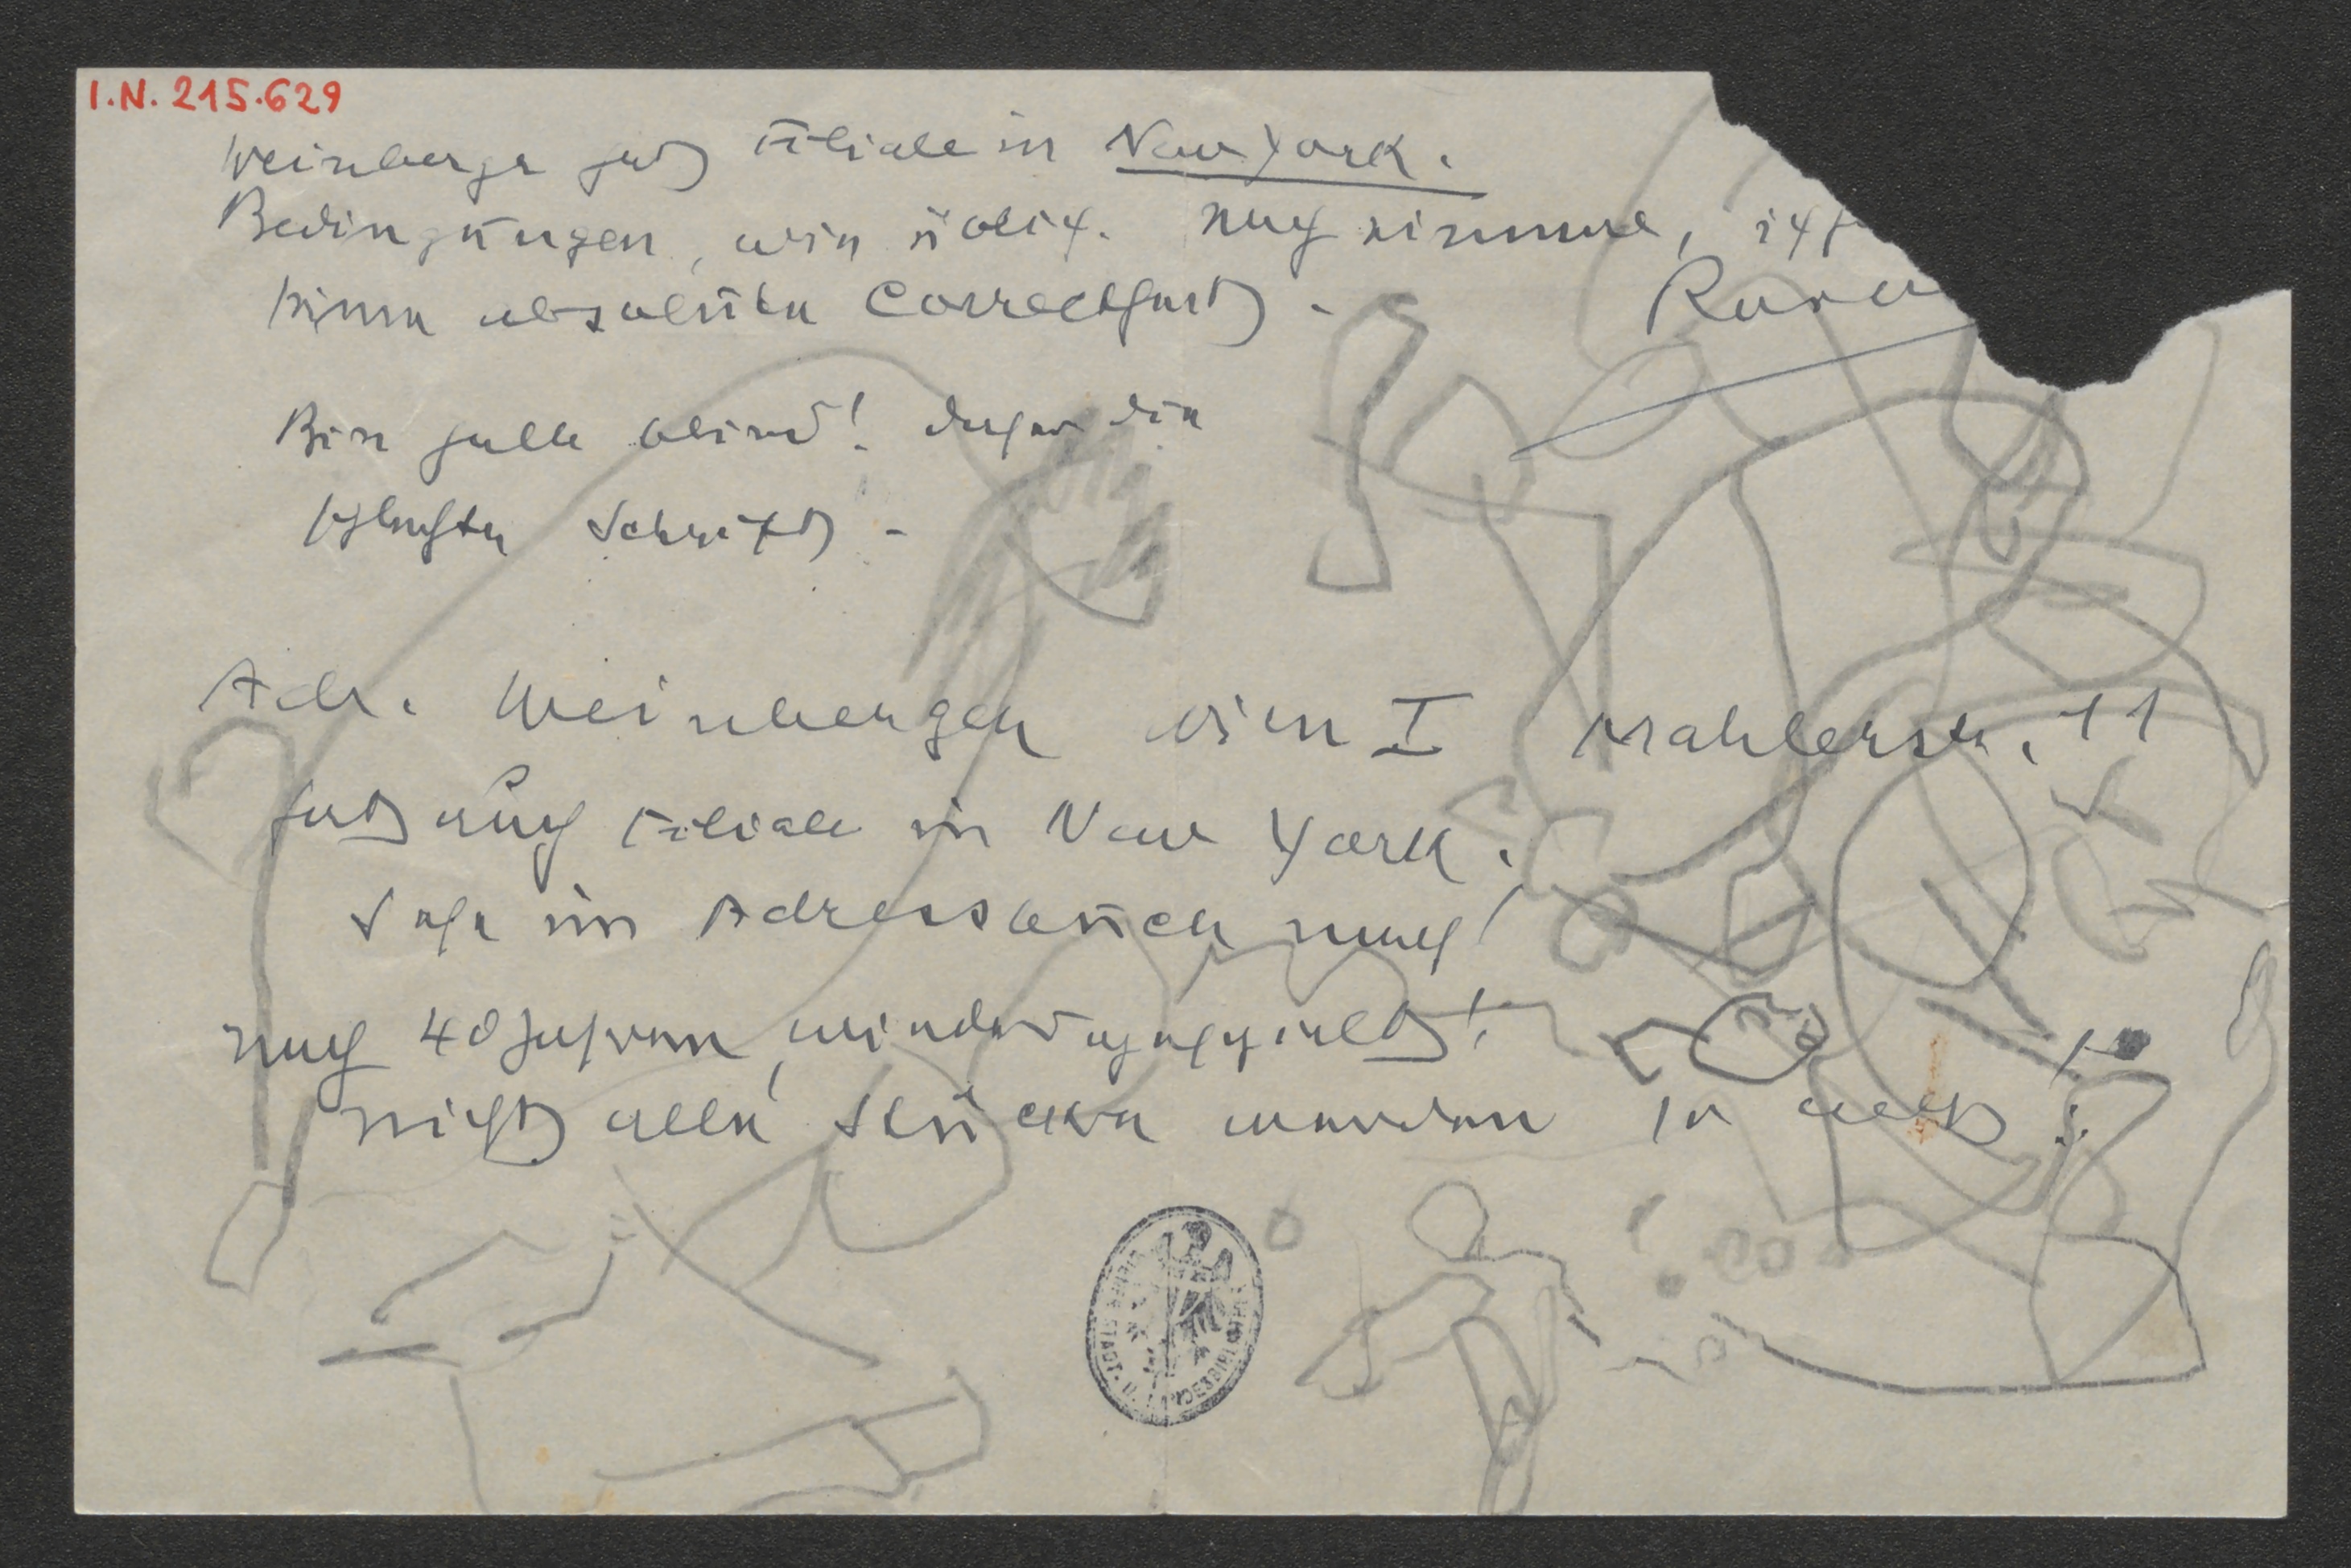 I.N. 215.629
Weinberger hat Filiale in New York.
Bedingungen, wie üblich. Noch einmal,
keine absolute Correctheit -
Bin halb blind! daher die
schlechte Schrift -
Adr. Weinberger Wien I Mahlerstr. 11
hat auch Filiale in New York.
Sehe im Adressbuch nach!
nach 40 Jahren wieder aufgespielt!
nicht alle Stücke werden so alt!